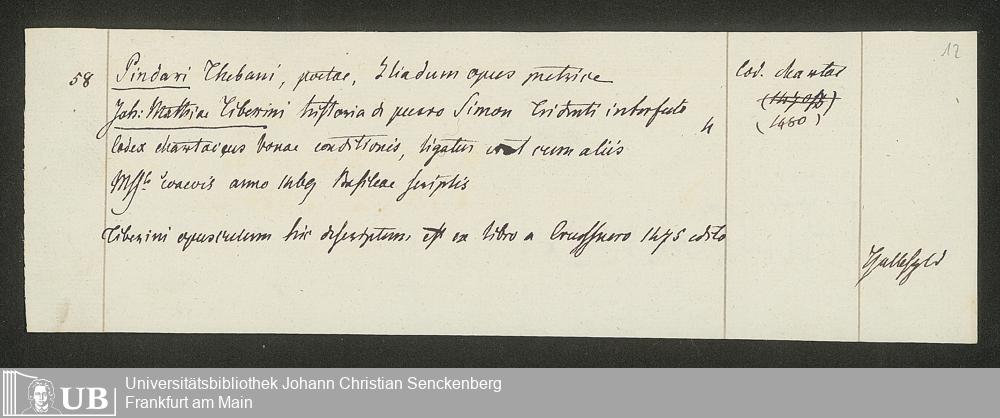 12
58 Pindari Thebani, poetae, Iliadum opus metrice
Joh: Mathiae Tiberini historia de puero Simon Tridenti interfecto
Codex chartaceus bonae conditionis, ligatus cum aliis
coaevis anno 1469 Basileae scriptis
Tiberini opusculum hic descriptum est ex libro a Creussnero 1475 edito
4
Cod. chartac
(1480)
UB
Universitätsbibliothek Johann Christian Senckenberg
Frankfurt am Main